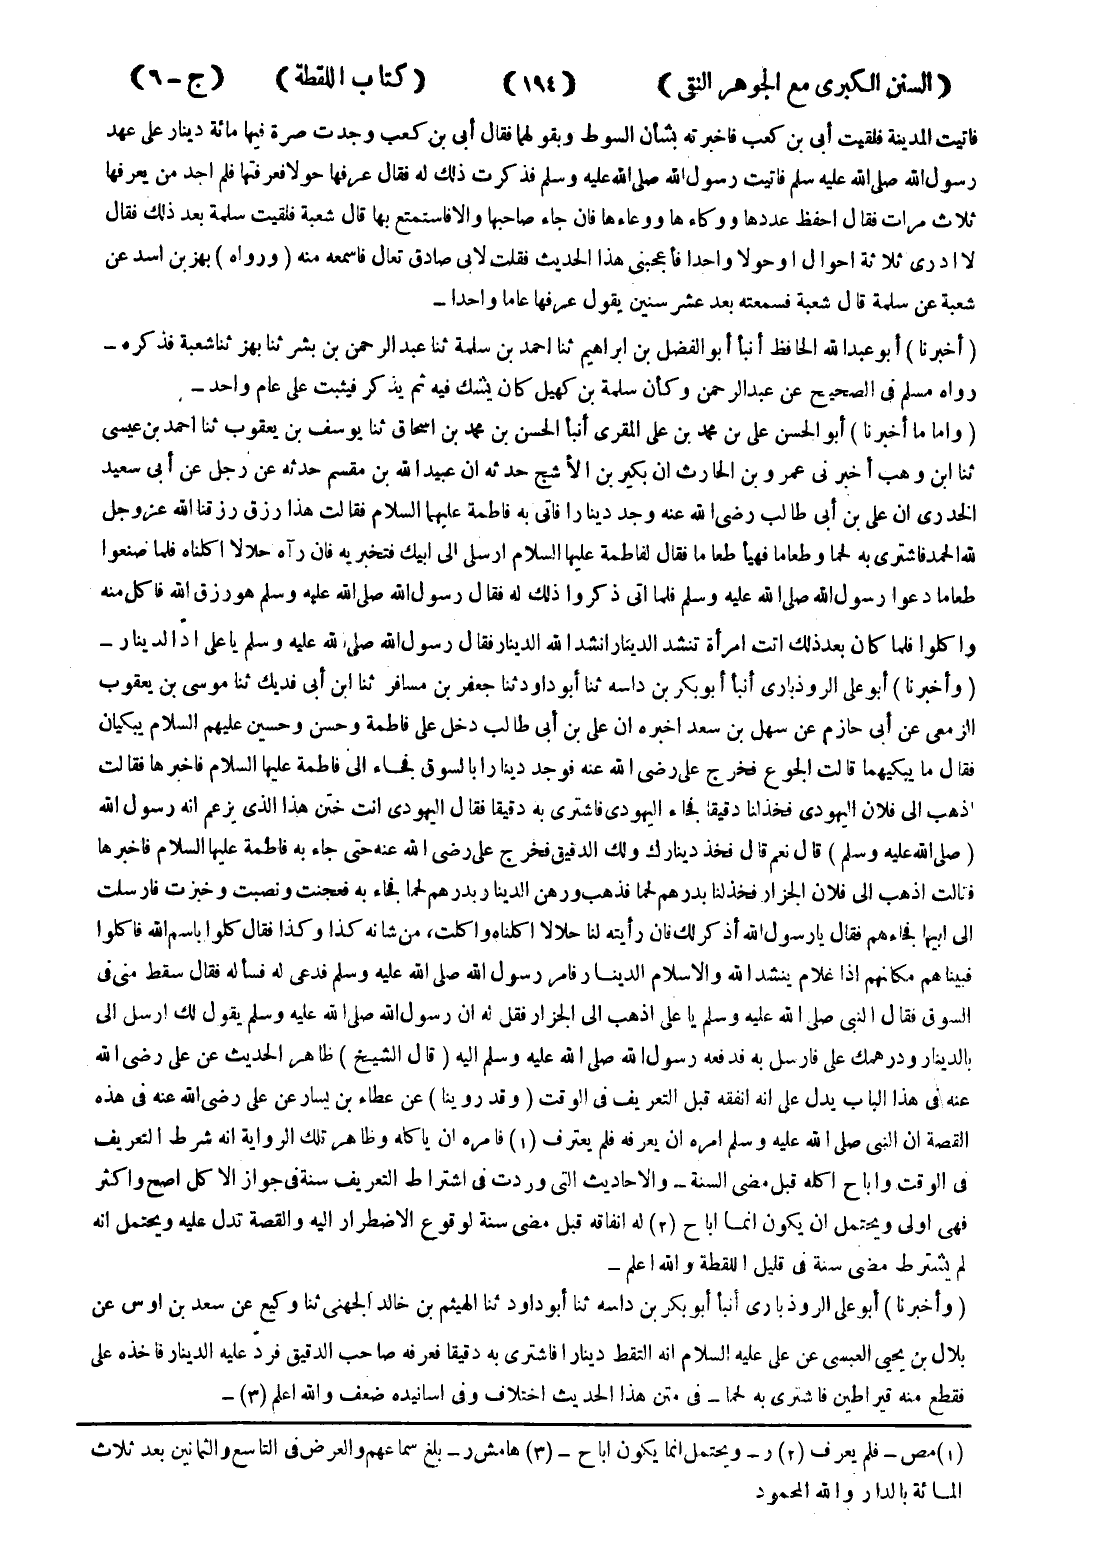 (السنن الكبرى مع الجوهر النقى) (١٩٤) (كتاب اللقطة) (ج-٦)
فاتيت المدينة فلقيت أبى بن كعب فاخبرته بشأن السوط وبقولهما فقال أبى بن كعب وجدت صرة فيها مائة دينار على عهد
رسول الله صلى الله عليه سلم فاتيت رسول الله صلى الله عليه وسلم فذكرت ذلك له فقال عرفها حولا فعرفتها فلم اجد من يعرفها
ثلاث مرات فقال احفظ عددها ووكاءها ووعاءها فان جاء صاحبها والا فاستمتع بها قال شعبة فلقيت سلمة بعد ذلك فقال
لا ادرى ثلاثة احوال او حولا واحدا فأعجبنى هذا الحديث فقلت لابى صادق تعال فاسمعه منه (ورواه) بهز بن اسد عن
شعبة عن سلمة قال شعبة فسمعته بعد عشر سنين يقول عرفها عاما واحدا -
(أخبرنا) أبو عبد الله الحافظ أنبأ أبو الفضل بن ابراهيم ثنا احمد بن سلمة ثنا عبد الرحمن بن بشر ثنا بهز ثنا شعبة فذكره -
رواه مسلم فى الصحيح عن عبد الرحمن وكأن سلمة بن كهيل كان يشك فيه ثم يذكر فيثبت على عام واحد -
(واما ما أخبرنا) أبو الحسن على بن محمد بن على المقرى أنبأ الحسن بن محمد بن اسحاق ثنا يوسف بن يعقوب ثنا احمد بن عيسى
ثنا ابن وهب أخبرنى عمرو بن الحارث ان بكير بن الأشج حدثه ان عبيد الله بن مقسم حدثه عن رجل عن أبى سعيد
الخدرى ان على بن أبى طالب رضى الله عنه وجد دينارا فاتى به فاطمة عليها السلام فقالت هذا رزق رزقنا الله عز وجل
لله الحمد فاشترى به لحما وطعاما فهيأ طعاما فقال لفاطمة عليها السلام ارسلى الى ابيك فتخبريه فان رآه حلالا اكلناه فلما صنعوا
طعاما دعوا رسول الله صلى الله عليه وسلم فلما اتى ذكروا ذلك له فقال رسول الله صلى الله عليه وسلم هو رزق الله فاكل منه
واكلوا فلما كان بعد ذلك اتت امرأة تنشد الدينار انشد الله الدينار فقال رسول الله صلى الله عليه وسلم يا على ادّ الدينار -
(وأخبرنا) أبو على الروذبارى أنبأ أبو بكر بن داسه ثنا أبو داود ثنا جعفر بن مسافر ثنا ابن أبى فديك ثنا موسى بن يعقوب
الزمعى عن أبى حازم عن سهل بن سعد اخبره ان على بن أبى طالب دخل على فاطمة وحسن وحسين عليهم السلام يبكيان
فقال ما يبكيهما قالت الجوع فخرج على رضى الله عنه فوجد دينارا بالسوق فجاء الى فاطمة عليها السلام فاخبرها فقالت
اذهب الى فلان اليهودى فخذ لنا دقيقا فجاء اليهودى فاشترى به دقيقا فقال اليهودى انت ختن هذا الذى يزعم انه رسول الله
(صلى الله عليه وسلم) قال نعم قال فخذ دينارك ولك الدقيق فخرج على رضى الله عنه حتى جاء به فاطمة عليها السلام فاخبرها
فقالت اذهب الى فلان الجزار فخذ لنا بدرهم لحما فذهب ورهن الدينار بدرهم لحما فجاء به فعجنت ونصبت وخبزت فارسلت
الى ابيها فجاءهم فقال يا رسول الله أذكر لك فان رأيته لنا حلالا اكلناه واكلت، من شانه كذا وكذا فقال كلوا باسم الله فاكلوا
فبيناهم مكانهم اذا غلام ينشد الله والاسلام الدينار فامر رسول الله صلى الله عليه وسلم فدعى له فسأله فقال سقط منى فى
السوق فقال النبى صلى الله عليه وسلم يا على اذهب الى الجزار فقل له ان رسول الله صلى الله عليه وسلم يقول لك ارسل الى
بالدينار ودرهمك على فارسل به فدفعه رسول الله صلى الله عليه وسلم اليه (قال الشيخ) ظاهر الحديث عن على رضى الله
عنه فى هذا الباب يدل على انه انفقه قبل التعريف فى الوقت (وقد روينا) عن عطاء بن يسار عن على رضى الله عنه فى هذه
القصة ان النبى صلى الله عليه وسلم امره ان يعرفه فلم يعترف (١) فامره ان ياكله وظاهر تلك الرواية انه شرط التعريف
فى الوقت واباح اكله قبل مضى السنة - والاحاديث التى وردت فى اشتراط التعريف سنة فى جواز الاكل اصح واكثر
فهى اولى ويحتمل ان يكون انما اباح (٢) له انفاقه قبل مضى سنة لوقوع الاضطرار اليه والقصة تدل عليه ويحتمل انه
لم يشترط مضى سنة فى قليل اللقطة والله اعلم -
(وأخبرنا) أبو على الروذبارى أنبأ أبو بكر بن داسه ثنا أبو داود ثنا الهيثم بن خالد الجهنى ثنا وكيع عن سعد بن اوس عن
بلال بن يحيى العبسى عن على عليه السلام انه التقط دينارا فاشترى به دقيقا فعرفه صاحب الدقيق فردّ عليه الدينار فاخذه على
فقطع منه قيراطين فاشترى به لحما - فى متن هذا الحديث اختلاف وفى اسانيده ضعف والله اعلم (٣) -
(١) مص - فلم يعرف (٢) ر - ويحتمل انما يكون اباح - (٣) هامش ر - بلغ سماعهم والعرض فى التاسع والثمانين بعد ثلاث
المائة بالدار والله المحمود